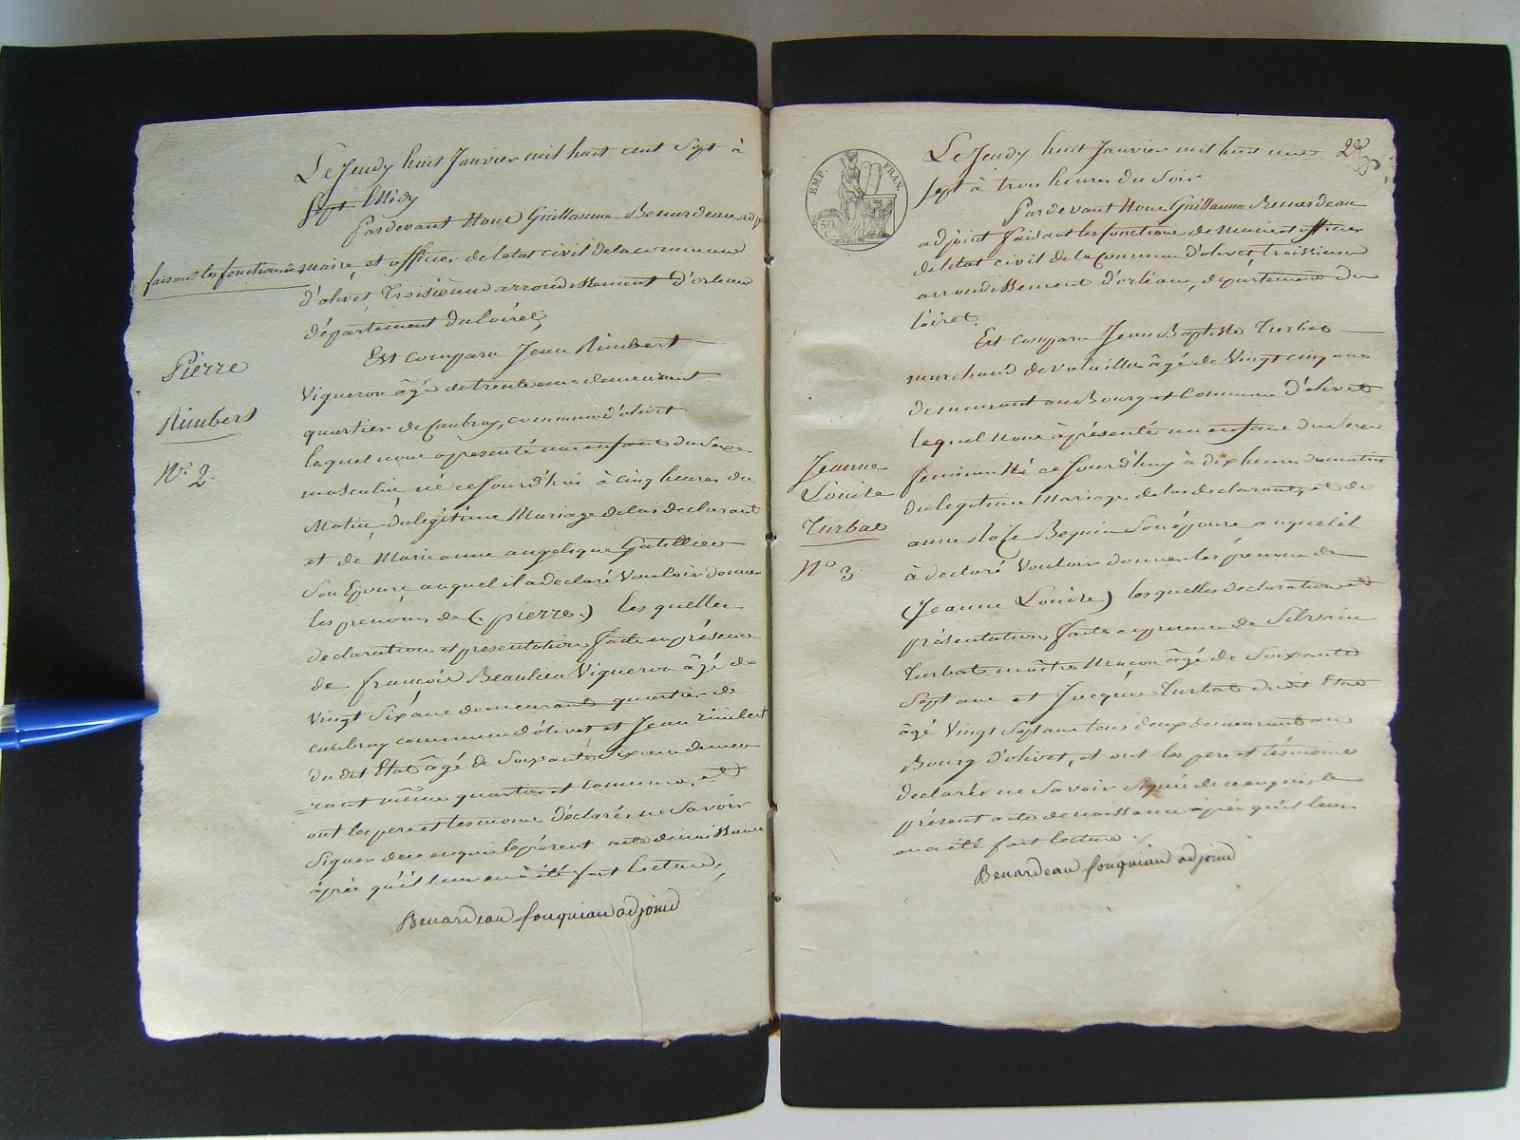 Le Jeudy huit Janvier mil huit cent Sept à
Sept Midy
Pardevant Nous Guillaume Benardeau adjt
faisant les fonctions de maire, et officier de létat civil de la commune
d'olivet troisième arrondissement d'orleans
département du loiret,
Est comparu Jean Rimbert
Vigneron âgé de trente ans demeurant
quartier de Caubray, commune d'olivet
lequel nous a présenté un enfant du Sexe
masculin, né ce Jourd'hui à cinq heures du
Matin, du légitime Mariage de lui declarant
et de Marie anne angelique Gatellier
Son Epouse auquel il a declaré Vouloir donner
les prénoms de (pierre) les quelles
declaration et presentation faite en présence
de françois Beaulieu Vigneron âgé de
Vingt Six ans demeurant quartier de
caubray commune d'olivet et Jean rimbert
du dit Etat âgé de Soixante Six ans demeu
rant même quartier et commune, et
ont les pere et temoins déclarés ne Savoir
Signer de ce enquis le présent acte de naissance
après qu'il leur en à été fait lecture,
Benardeau fouqueau adjoind
Pierre
Rimbert
N° 2.
EMP. FRAN.
2e
Le Jeudy huit Janvier mil huit cent
sept à trois heures du Soir
Pardevant Nous Guillaume Benardeau
adjoint faisant les fonctions de Maire et officier
de létat civil de la Commune d'olivet troisieme
arrondissement d'orléans, département du
loiret.
Est comparu Jean Baptiste Turbat
marchand de volailles âgé de Vingt cinq ans
demeurant au Bourg et Commune d'olivet
lequel Nous à présenté un enfant du Sexe
feminin Né ce Jourd'huy à dix heures du matin
du legitime Mariage de lui declarant, et de
anne Son épouse auquel il
à declaré Vouloir donner les prenoms de
(Jeanne Louise) les quelles declaration et
présentation faite en presence de
Turbat maître Maçon âgé de Soixante
Sept ans et Jacques Turbat du dit Etat
âgé Vingt Sept ans tous deux demeurant au
Bourg d'olivet, et ont les pere et témoins
declarés ne Savoir Signer de ce enquis le
présent acte de naissance après qu'il leur
en a été fait lecture.
Benardeau fouqueau adjoind
Jeanne
Louise
Turbat
N° 3.